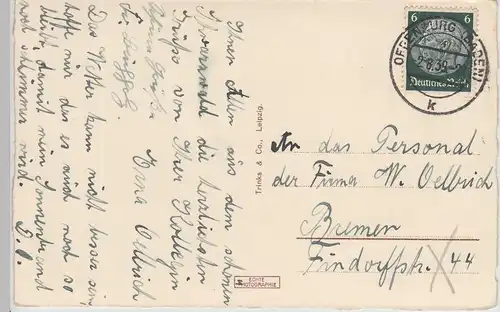 Ihnen Allen aus dem schönen
Schwarzwald die herzlichsten
Grüße von Ihrer Kollegin
Erna Oellrich
Das Wetter kann nicht besser sein,
hoffe nur das es auch noch so
bleibt, damit mein Sonnenbrand
noch schlimmer wird.
E. O.
Trinks & Co., Leipzig.
ECHTE
PHOTOGRAPHIE
6 6
Deutsches Reich
OFFENBURG (BADEN)
k
An das Personal
der Firma W. Oellrich
Bremen
Findorffstr. 44